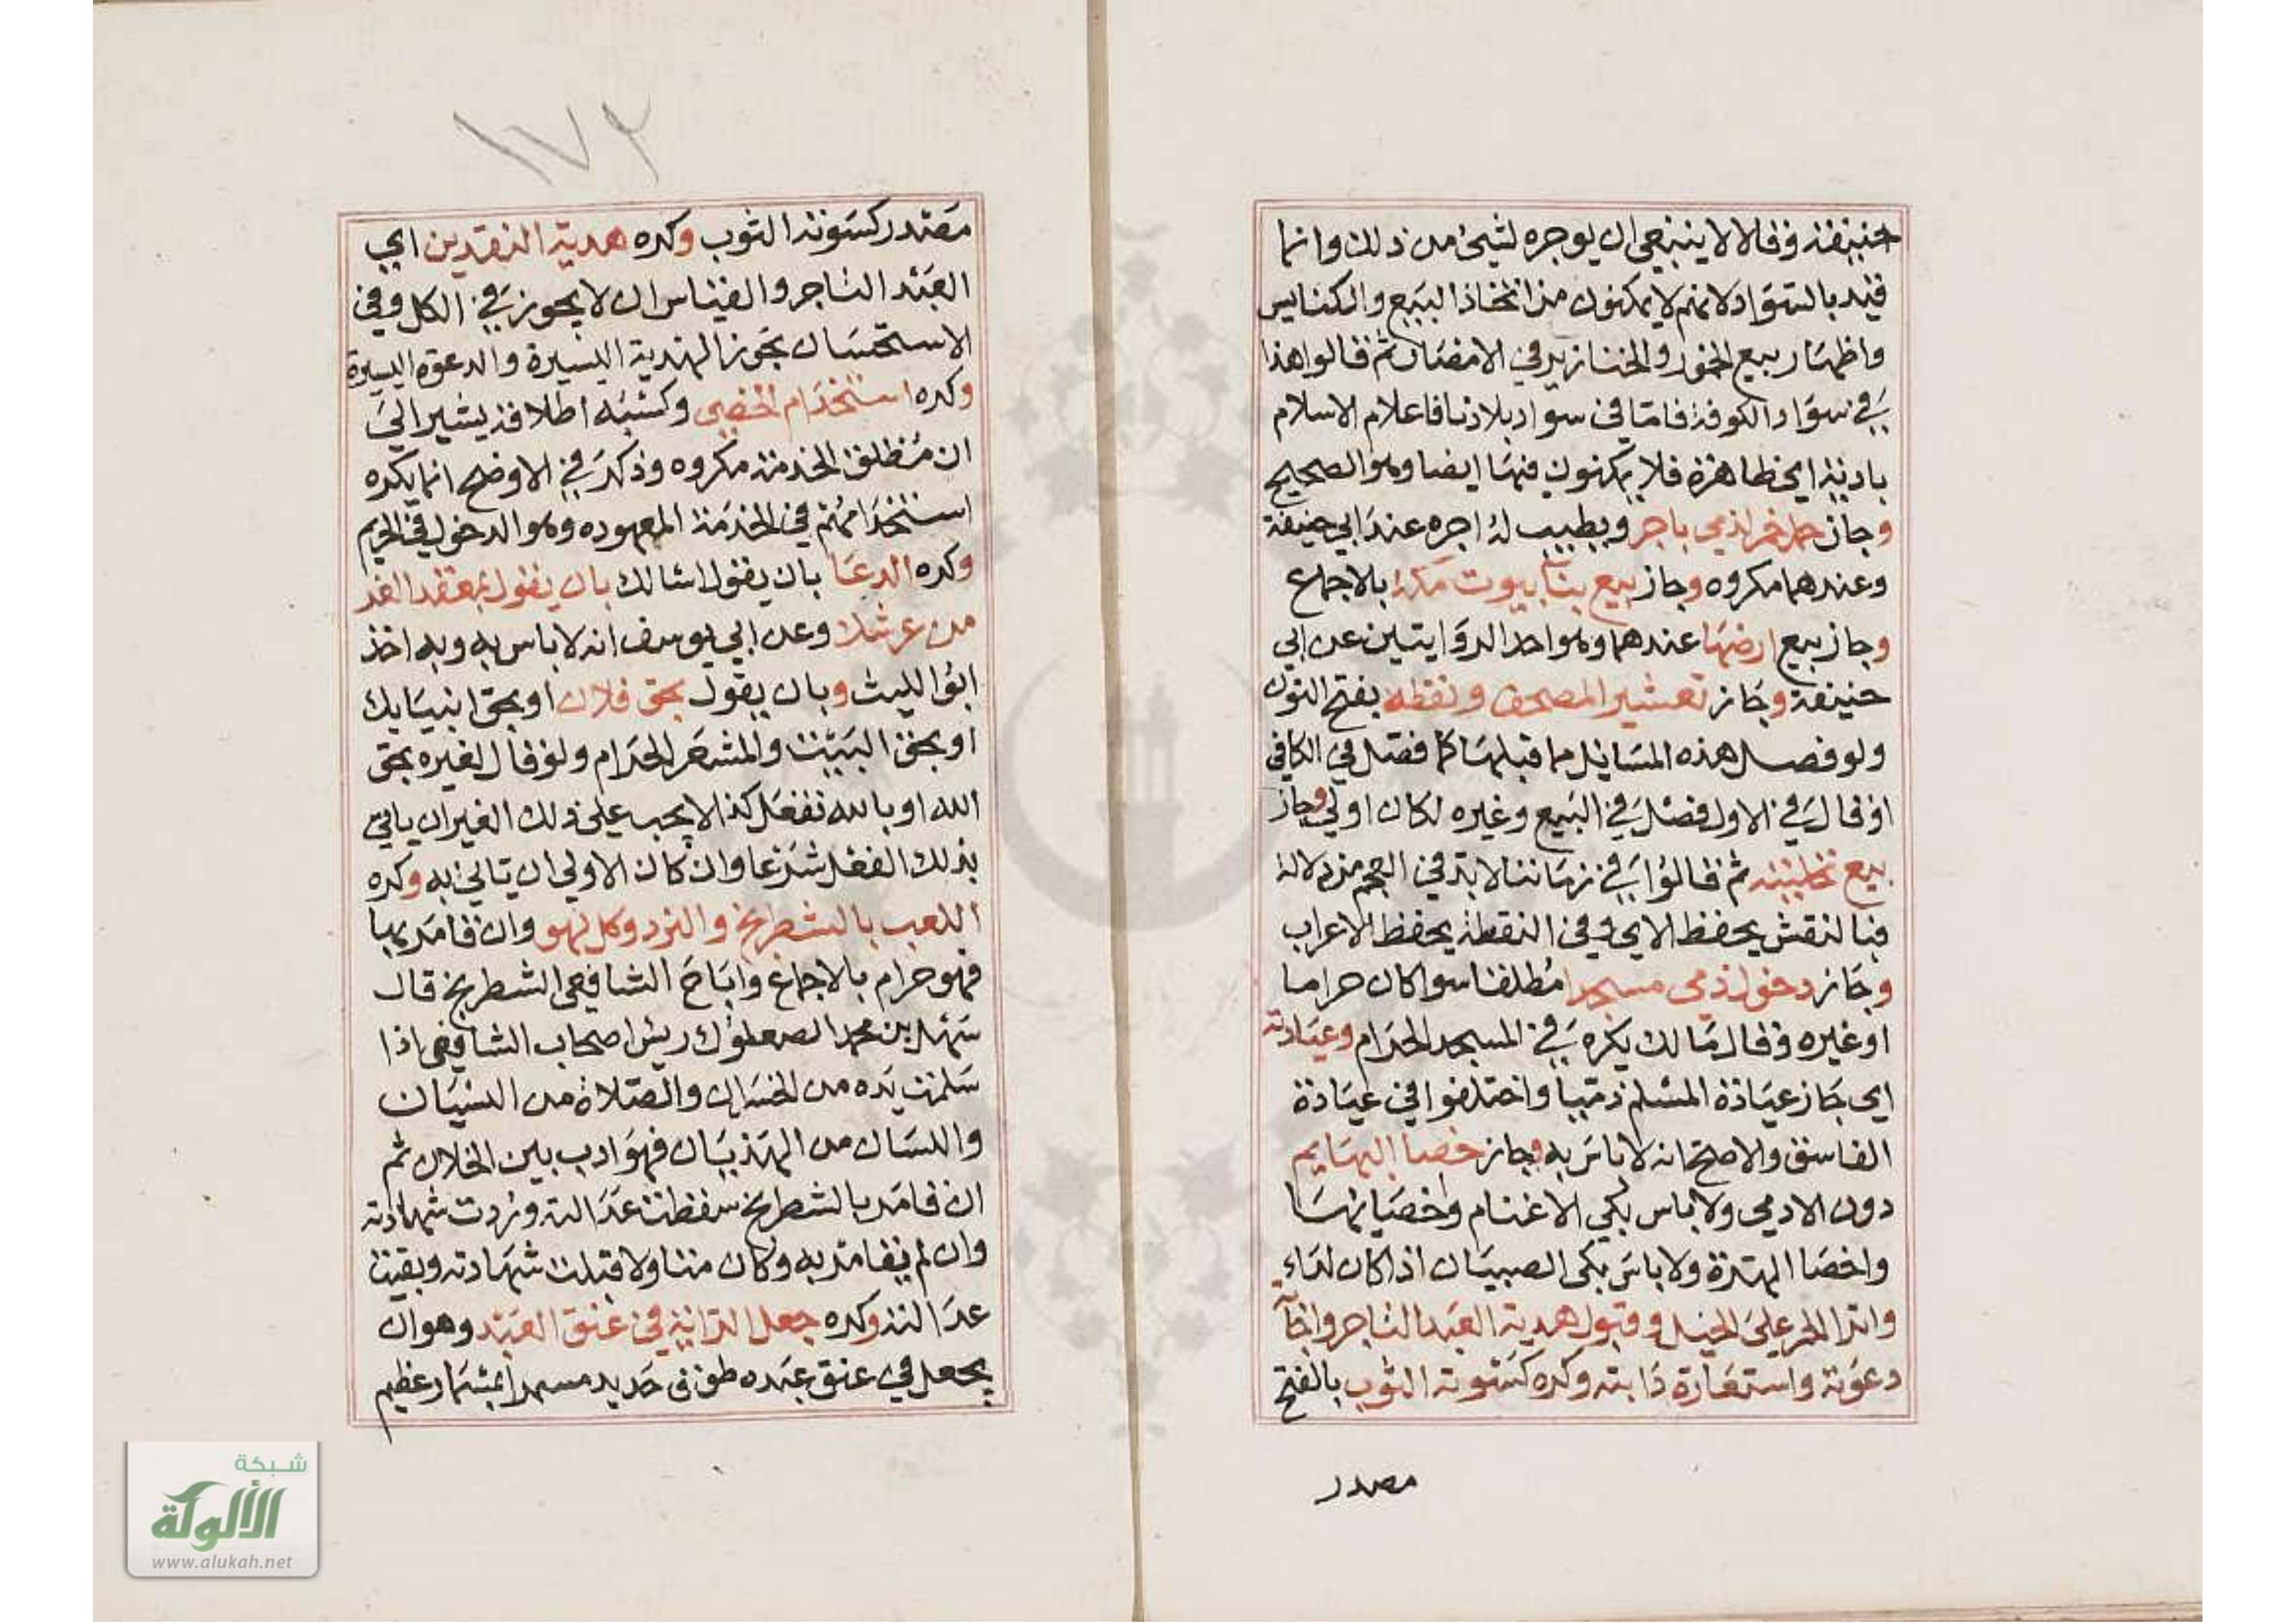 حنيفة وقالا لا ينبغي ان يوجره لشيء من ذلك وانما
قيد بالسواد لانهم لا يمكنون من اتخاذ البيع والكنايس
واظهار بيع الخمور والخنازير في الامصار ثم قالوا هذا
في سواد الكوفة فاما في سواد بلادنا فاعلام الاسلام
بادية اي ظاهرة فلا يمكنون فيها ايضا وهو الصحيح
وجاز حمل خمر لذمي باجر ويطيب له اجره عند ابي حنيفة
وعندهما مكروه وجاز بيع بنا بيوت مكة بالاجماع
وجاز بيع ارضها عندهما وهو احد الروايتين عن ابي
حنيفة وجاز تعشير المصحف ونقطه بفتح النون
ولو فصل هذه المسايل مما قبلها كما فصل في الكافي
او قال في الاول فصل في البيع وغيره لكان اولي وجاز
بيع تحليته ثم قالوا في زماننا لابد في العجم من دلالة
فبالنقش يحفظ الاي وفي النقطة يحفظ الاعراب
وجاز دخول ذمي مسجدا مطلقا سوا كان حراما
او غيره وقال مالك يكره في المسجد الحرام وعيادته
اي جاز عيادة المسلم ذميا واختلفوا في عيادة
الفاسق والاصح انه لا باس به وجاز خصا البهايم
دون الادمي ولا باس بكي الاغنام واخصايها
واخصا الهرة ولا باس بكي الصبيان اذا كان لداء
وانزا الحمر علي الخيل وقبول هدية العبد التاجر واجابة
دعوته واستعارة دابته وكره كسوته الثوب بالفتح
مصدر
١٧٢
مصدر كسوته الثوب وكره هدية النقدين اي
العبد التاجر والقياس ان لا يجوز في الكل وفي
الاستحسان يجوز الهدية اليسيرة والدعوة اليسيرة
وكره استخدام الخصي وكسبه اطلاقه يشير الي
ان مطلق الخدمة مكروه وذكر في الاوضح انما يكره
استخدامهم في الخدمة المعهوده وهو الدخول في الحريم
وكره الدعا بان يقول اسالك بان يقول بمعقد العز
من عرشك وعن ابي يوسف انه لا باس به وبه اخذ
ابو الليث وبان يقول بحق فلان او بحق انبيايك
او بحق البيت والمشعر الحرام ولو قال لغيره بحق
الله او بالله تفعل كذا لا يجب علي ذلك الغير ان ياتي
بذلك الفعل شرعا وان كان الاولي ان ياتي به وكره
اللعب بالشطرنج والنرد وكل لهو وان قامر بها
فهو حرام بالاجماع واباح الشافعي الشطرنج قال
سهل بن محمد الصعلوك ريس اصحاب الشافعي اذا
سلمت يده من الخسران والصلاة من النسيان
واللسان من الهذيان فهو ادب بين الخلان ثم
ان قامر بالشطرنج سقطت عدالته وردت شهادته
وان لم يقامر به وكان متناولا قبلت شهادته وبقيت
عدالته وكره جعل الراية في عنق العبد وهو ان
يجعل في عنق عبده طوق حديد مسمرا بمسمار عظيم
شبكة
الألوكة
www.alukah.net